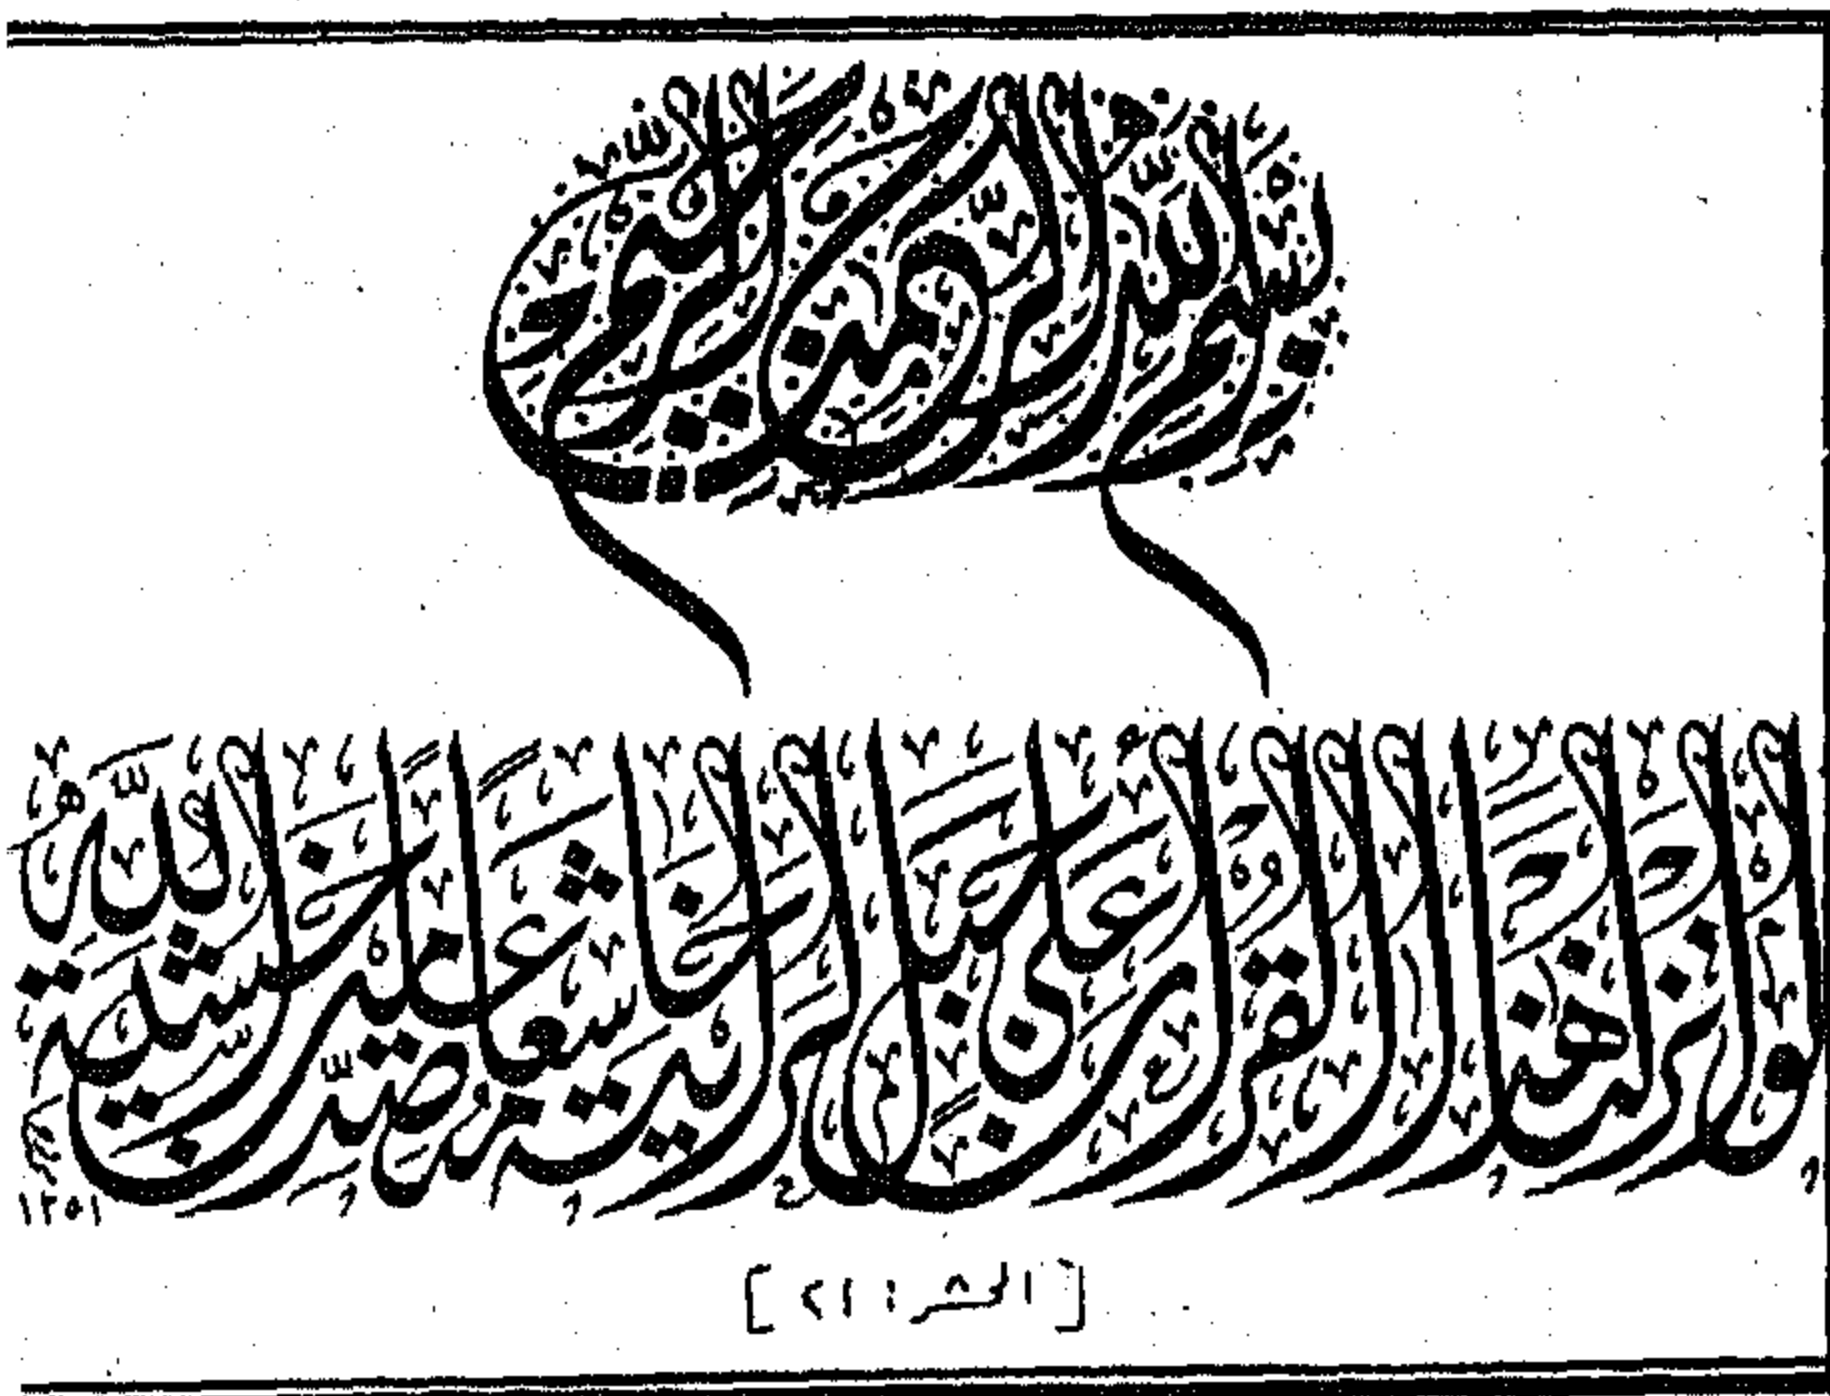 بسم الله الرحمن الرحيم
لو أنزلنا هذا القرآن على جبل لرأيته خاشعا متصدعا من خشية الله
١٢٥١
[الحشر : ٢١]